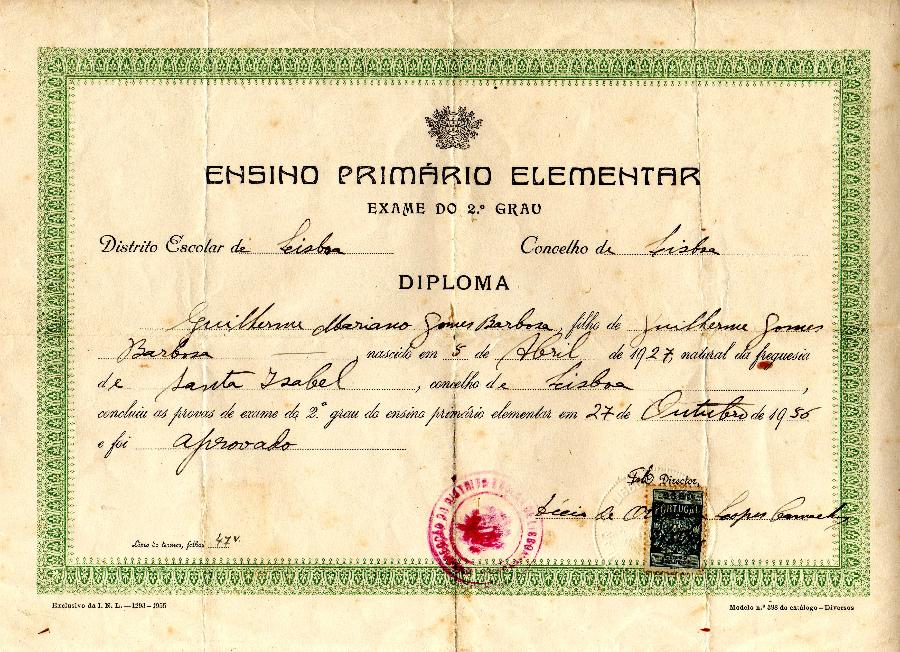 ENSINO PRIMÁRIO ELEMENTAR
EXAME DO 2.º GRAU
Distrito Escolar de Lisboa Concelho de Lisboa
DIPLOMA
Guilherme Mariano Gomes Barbosa, filho de Guilherme Gomes
Barbosa — nascido em 5 de Abril de 1927 natural da freguesia
de Santa Isabel, concelho de Lisboa,
concluiu as provas de exame do 2.º grau do ensino primário elementar em 27 de Outubro de 1956
e foi Aprovado
Director,
de Lopes
PORTUGAL
Livro de termos, folhas 47v.
Exclusivo da I. N. L. — 1293 — 1955
Modelo n.º 598 do catálogo — Diversos